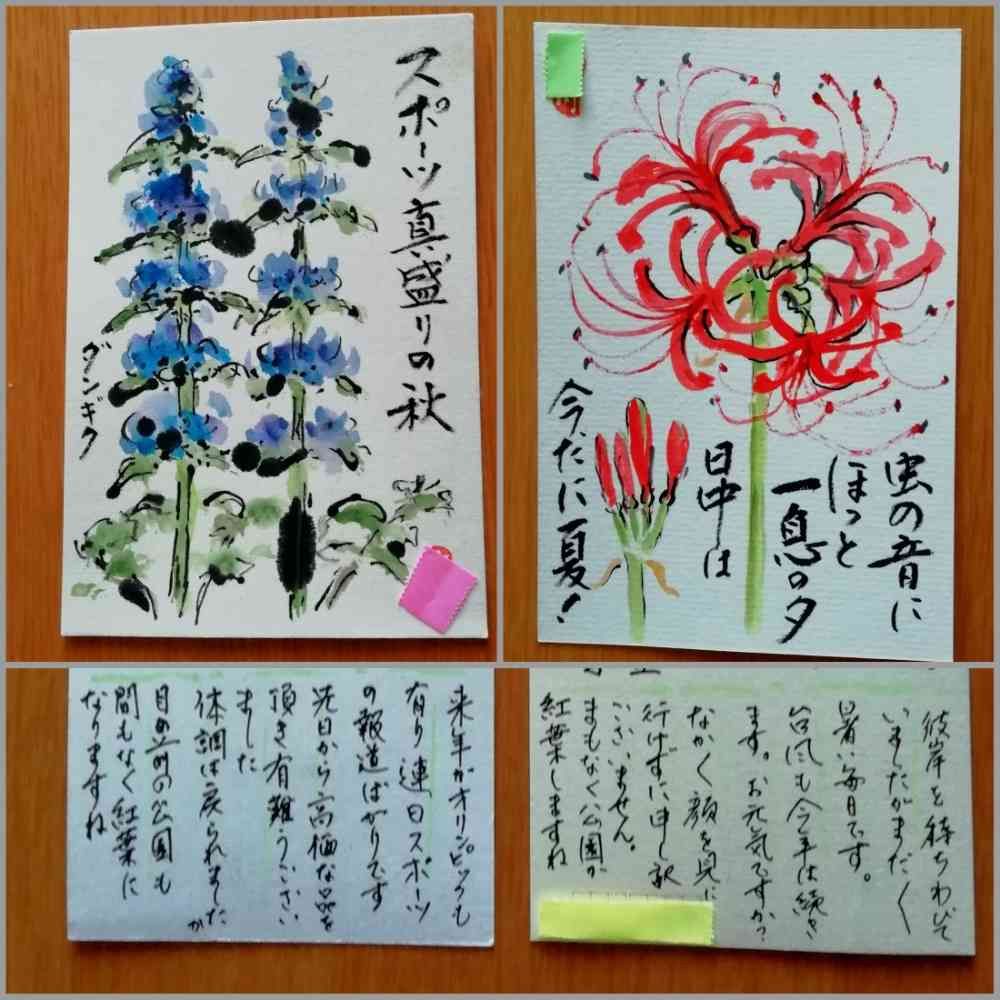 スポーツ真盛りの秋
ダンギク
虫の音に
ほっと
一息の夕
日中は
今だに夏!
来年がオリンピックも
有り連日スポーツ
の報道ばかりです
先日から高価な品を
頂き有難うござい
ました
体調は戻られましたか
目の前の公園も
間もなく紅葉に
なりますね
彼岸を待ちわびて
いましたがまだ〱
暑い毎日です。
台風も今年は続き
ます。お元気ですか?
なかく顔を見に
行けずに申し訳
ございません。
まもなく公園が
紅葉しますね